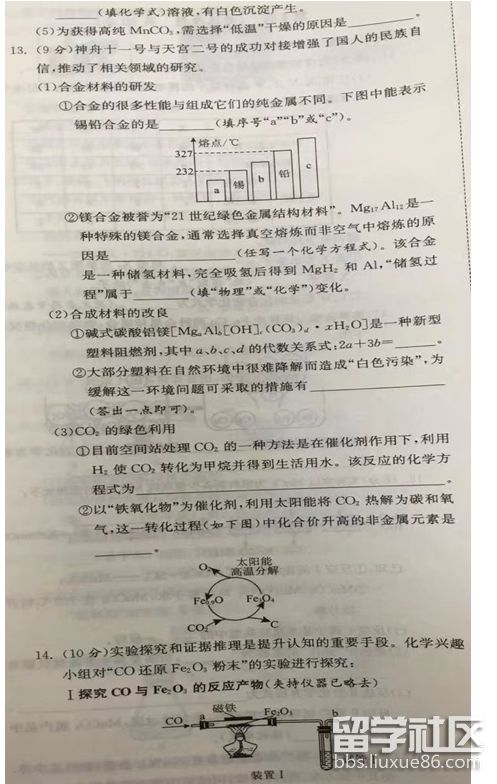 ______(填化学式)溶液,有白色沉淀产生。
(5)为获得高纯 MnCO₃,需选择“低温”干燥的原因是______。
13. (9 分)神舟十一号与天宫二号的成功对接增强了国人的民族自
信,推动了相关领域的研究。
(1)合金材料的研发
①合金的很多性能与组成它们的纯金属不同。下图中能表示
锡铅合金的是______(填序号“a”“b”或“c”)。
熔点/℃
327
232
a 锡 b 铅 c
②镁合金被誉为“21 世纪绿色金属结构材料”。Mg₁₇Al₁₂是一
种特殊的镁合金,通常选择真空熔炼而非空气中熔炼的原
因是______(任写一个化学方程式)。该合金
是一种储氢材料,完全吸氢后得到 MgH₂ 和 Al,“储氢过
程”属于______(填“物理”或“化学”)变化。
(2)合成材料的改良
①碱式碳酸铝镁[MgₐAl_b[OH]_c(CO₃)_d·xH₂O]是一种新型
塑料阻燃剂,其中 a、b、c、d 的代数关系式:2a+3b=______。
②大部分塑料在自然环境中很难降解而造成“白色污染”,为
缓解这一环境问题可采取的措施有______
(答出一点即可)。
(3)CO₂ 的绿色利用
①目前空间站处理 CO₂ 的一种方法是在催化剂作用下,利用
H₂ 使 CO₂ 转化为甲烷并得到生活用水。该反应的化学方
程式为______。
②以“铁氧化物”为催化剂,利用太阳能将 CO₂ 热解为碳和氧
气,这一转化过程(如下图)中化合价升高的非金属元素是
______。
太阳能
O₂ 高温分解
Fe₃O₄
CO₂ C
14. (10 分)实验探究和证据推理是提升认知的重要手段。化学兴趣
小组对“CO 还原 Fe₂O₃ 粉末”的实验进行探究:
Ⅰ 探究 CO 与 Fe₂O₃ 的反应产物(夹持仪器已略去)
磁铁
CO a Fe₂O₃ b
装置 Ⅰ
留学社区
bbs.liuxue86.com